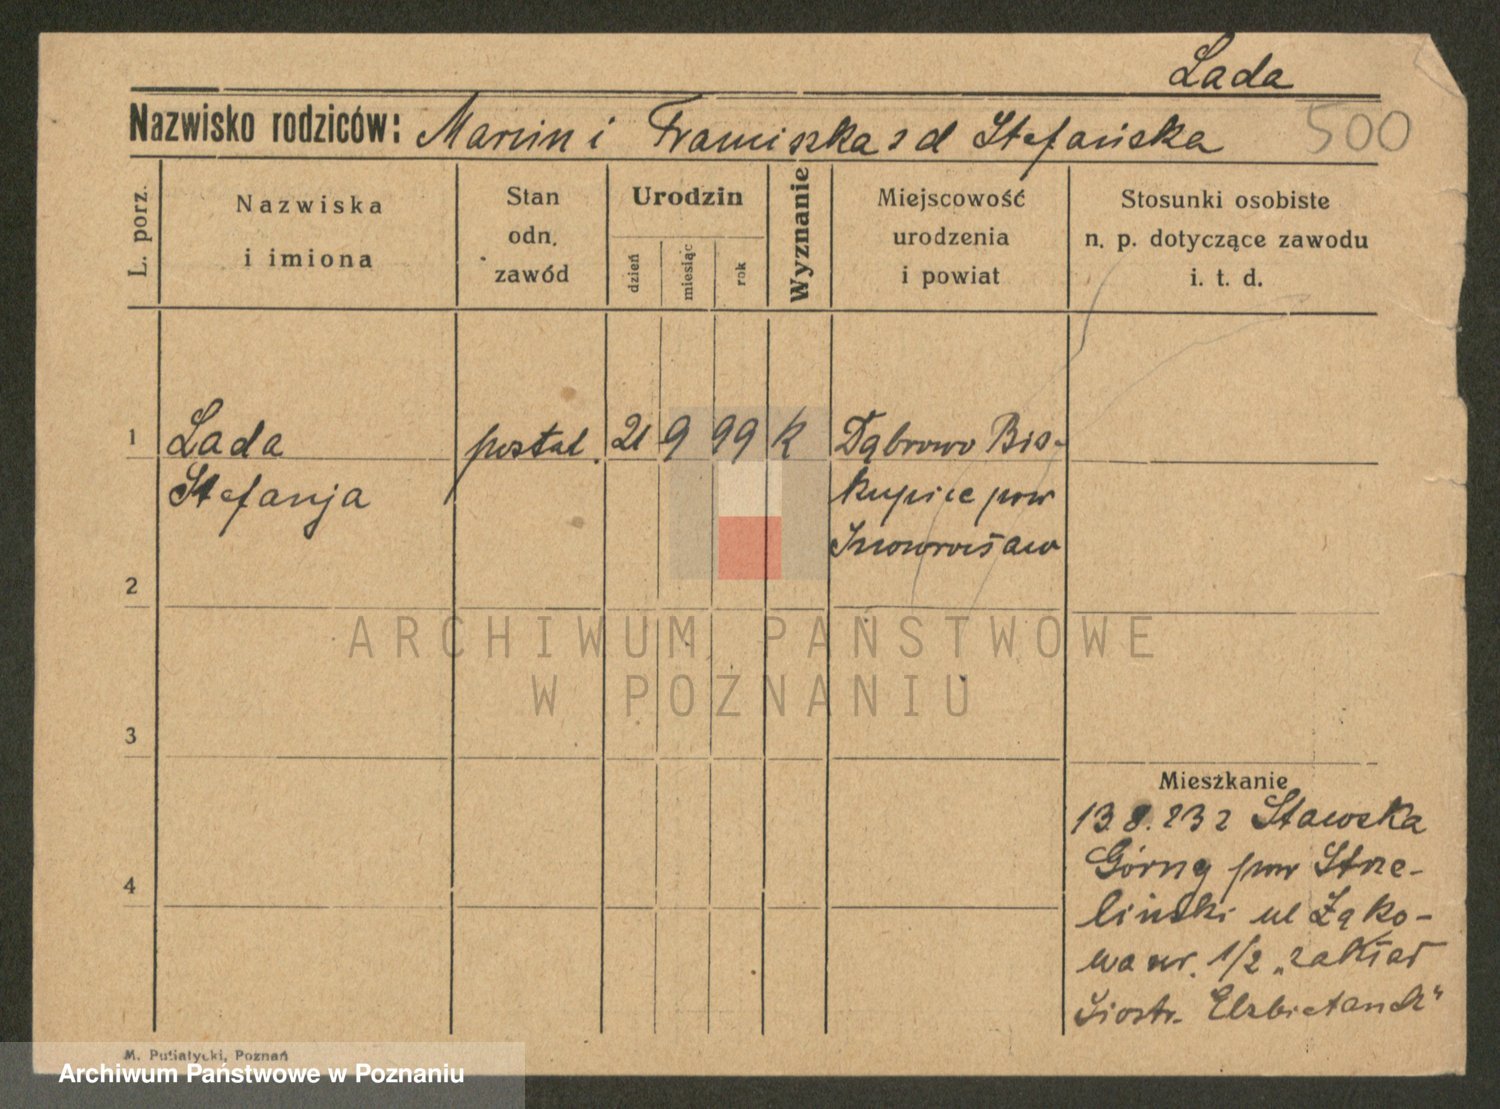 Lada
Nazwisko rodziców: Marcin i Franciszka z d Stefańska 500
L. porz.
Nazwiska
i imiona
Stan
odn.
zawód
Urodzin
dzień
miesiąc
rok
Wyznanie
Miejscowość
urodzenia
i powiat
Stosunki osobiste
n. p. dotyczące zawodu
i. t. d.
1 Lada postul. 21 9 99 k Dąbrowo Bis-
Stefanja kupice pow
Inowrocław
2
ARCHIWUM PAŃSTWOWE
W POZNANIU
3
Mieszkanie
13 8. 23 z Stawska
Górng pow Strze-
4
liński ul Łąko-
wa nr. 1/2 „zakład
Siostr. Elzbietanek"
M. Putiatycki, Poznań
Archiwum Państwowe w Poznaniu